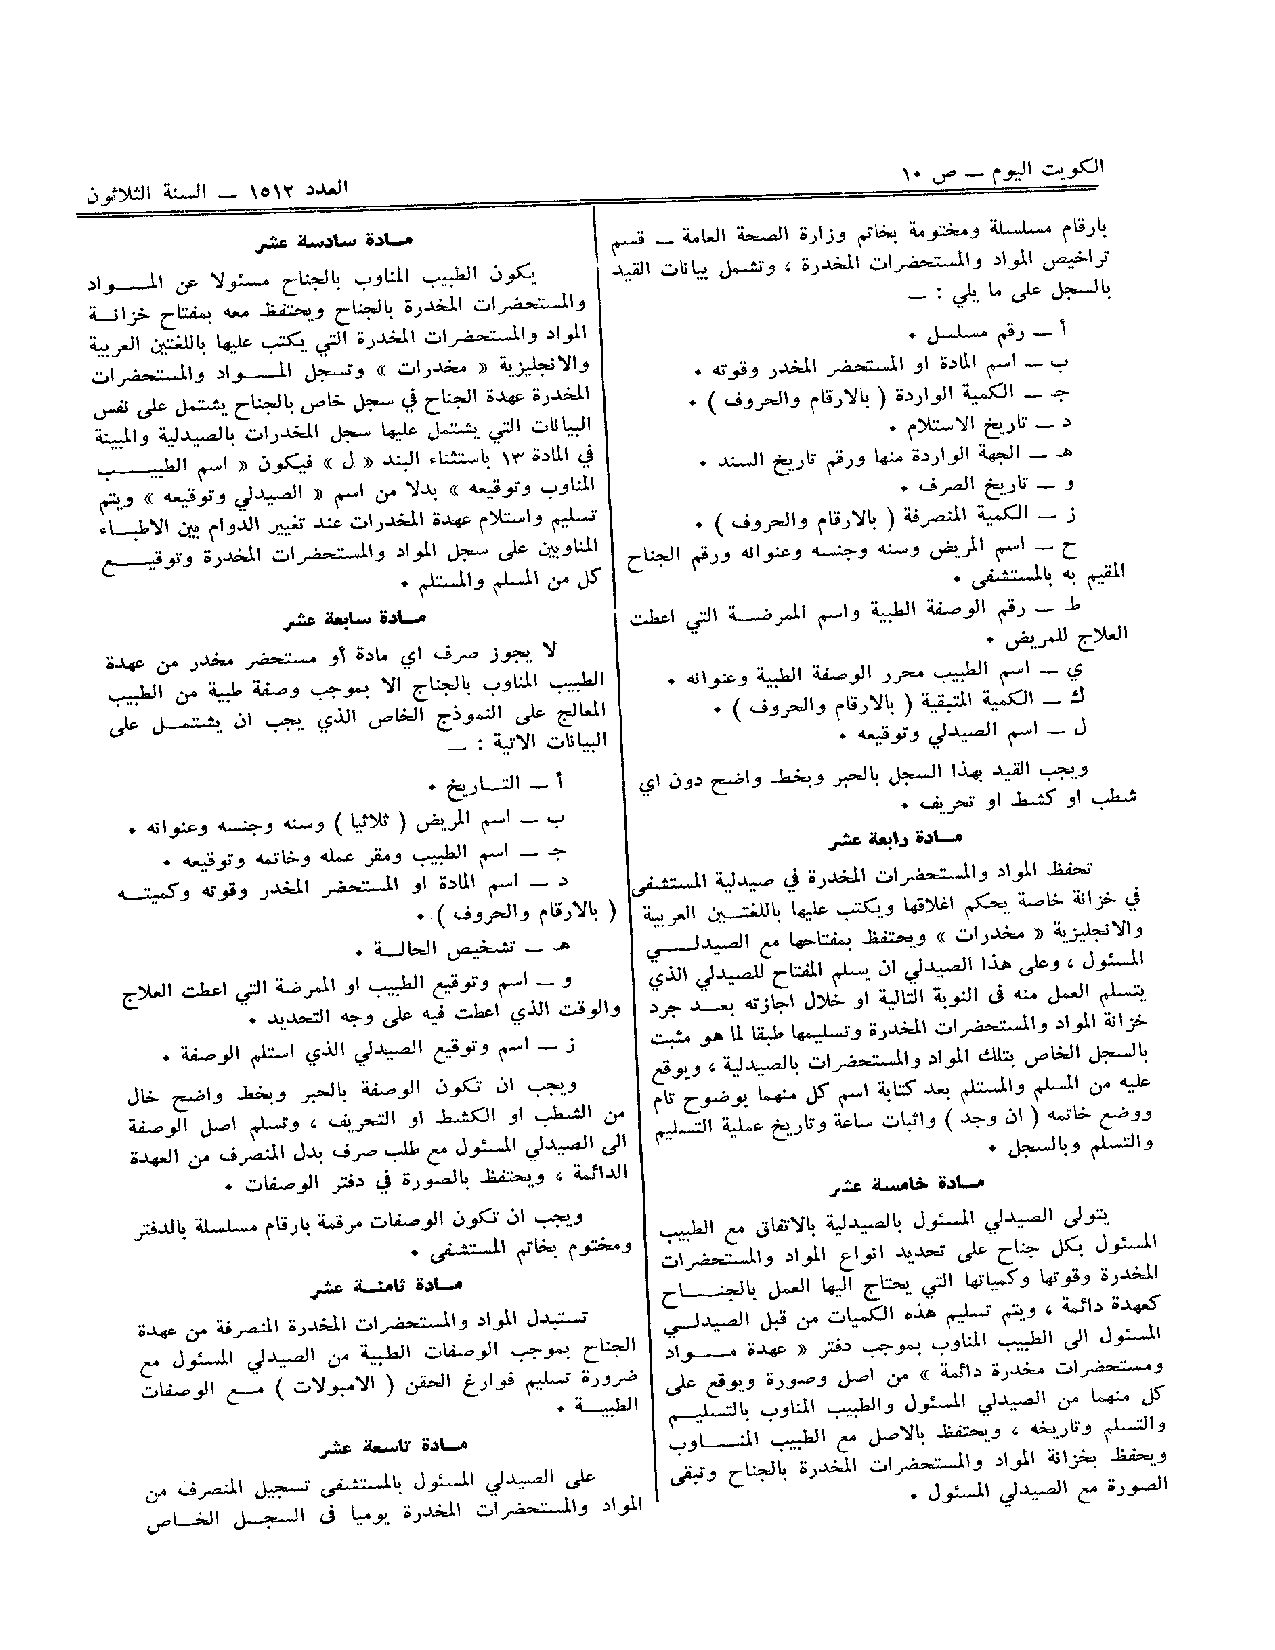 الكويت اليوم — ص ١٠
العدد ١٥١٢ — السنة الثلاثون
بارقام مسلسلة ومختومة بخاتم وزارة الصحة العامة — قسم
تراخيص المواد والمستحضرات المخدرة ، وتشمل بيانات القيد
بالسجل على ما يلي : —
أ — رقم مسلسل .
ب — اسم المادة او المستحضر المخدر وقوته .
جـ — الكمية الواردة ( بالارقام والحروف ) .
د — تاريخ الاستلام .
هـ — الجهة الواردة منها ورقم تاريخ السند .
و — تاريخ الصرف .
ز — الكمية المنصرفة ( بالارقام والحروف ) .
ح — اسم المريض وسنه وجنسه وعنوانه ورقم الجناح
المقيم به بالمستشفى .
ط — رقم الوصفة الطبية واسم الممرضة التي اعطت
العلاج للمريض .
ي — اسم الطبيب محرر الوصفة الطبية وعنوانه .
ك — الكمية المتبقية ( بالارقام والحروف ) .
ل — اسم الصيدلي وتوقيعه .
ويجب القيد بهذا السجل بالحبر وبخط واضح دون اي
شطب او كشط او تحريف .
مادة رابعة عشر
تحفظ المواد والمستحضرات المخدرة في صيدلية المستشفى
في خزانة خاصة يحكم اغلاقها ويكتب عليها باللغتين العربية
والانجليزية « مخدرات » ويحتفظ بمفتاحها مع الصيدلي
المسئول ، وعلى هذا الصيدلي ان يسلم المفتاح للصيدلي الذي
يتسلم العمل منه في النوبة التالية او خلال اجازته بعد جرد
خزانة المواد والمستحضرات المخدرة وتسليمها طبقا لما هو مثبت
بالسجل الخاص بتلك المواد والمستحضرات بالصيدلية ، ويوقع
عليه من المسلم والمستلم بعد كتابة اسم كل منهما بوضوح تام
ووضع خاتمه ( ان وجد ) واثبات ساعة وتاريخ عملية التسليم
والتسلم وبالسجل .
مادة خامسة عشر
يتولى الصيدلي المسئول بالصيدلية بالاتفاق مع الطبيب
المسئول بكل جناح على تحديد انواع المواد والمستحضرات
المخدرة وقوتها وكمياتها التي يحتاج اليها العمل بالجناح
كعهدة دائمة ، ويتم تسليم هذه الكميات من قبل الصيدلي
المسئول الى الطبيب المناوب بموجب دفتر « عهدة مواد
ومستحضرات مخدرة دائمة » من اصل وصورة ويوقع على
كل منهما من الصيدلي المسئول والطبيب المناوب بالتسليم
والتسلم وتاريخه ، ويحتفظ بالاصل مع الطبيب المناوب
ويحفظ بخزانة المواد والمستحضرات المخدرة بالجناح وتبقى
الصورة مع الصيدلي المسئول .
مادة سادسة عشر
يكون الطبيب المناوب بالجناح مسئولا عن المواد
والمستحضرات المخدرة بالجناح ويحتفظ معه بمفتاح خزانة
المواد والمستحضرات المخدرة التي يكتب عليها باللغتين العربية
والانجليزية « مخدرات » وتسجل المواد والمستحضرات
المخدرة عهدة الجناح في سجل خاص بالجناح يشتمل على نفس
البيانات التي يشتمل عليها سجل المخدرات بالصيدلية والمبينة
في المادة ١٣ باستثناء البند « ل » فيكون « اسم الطبيب
المناوب وتوقيعه » بدلا من اسم « الصيدلي وتوقيعه » ويتم
تسليم واستلام عهدة المخدرات عند تغيير الدوام بين الاطباء
المناوبين على سجل المواد والمستحضرات المخدرة وتوقيع
كل من المسلم والمستلم .
مادة سابعة عشر
لا يجوز صرف اي مادة أو مستحضر مخدر من عهدة
الطبيب المناوب بالجناح الا بموجب وصفة طبية من الطبيب
المعالج على النموذج الخاص الذي يجب ان يشتمل على
البيانات الاتية : —
أ — التاريخ .
ب — اسم المريض ( ثلاثيا ) وسنه وجنسه وعنوانه .
جـ — اسم الطبيب ومقر عمله وخاتمه وتوقيعه .
د — اسم المادة او المستحضر المخدر وقوته وكميته
( بالارقام والحروف ) .
هـ — تشخيص الحالة .
و — اسم وتوقيع الطبيب او الممرضة التي اعطت العلاج
والوقت الذي اعطت فيه على وجه التحديد .
ز — اسم وتوقيع الصيدلي الذي استلم الوصفة .
ويجب ان تكون الوصفة بالحبر وبخط واضح خال
من الشطب او الكشط او التحريف ، وتسلم اصل الوصفة
الى الصيدلي المسئول مع طلب صرف بدل المنصرف من العهدة
الدائمة ، ويحتفظ بالصورة في دفتر الوصفات .
ويجب ان تكون الوصفات مرقمة بارقام مسلسلة بالدفتر
ومختوم بخاتم المستشفى .
مادة ثامنة عشر
تستبدل المواد والمستحضرات المخدرة المنصرفة من عهدة
الجناح بموجب الوصفات الطبية من الصيدلي المسئول مع
ضرورة تسليم فوارغ الحقن ( الامبولات ) مع الوصفات
الطبية .
مادة تاسعة عشر
على الصيدلي المسئول بالمستشفى تسجيل المنصرف من
المواد والمستحضرات المخدرة يوميا في السجل الخاص